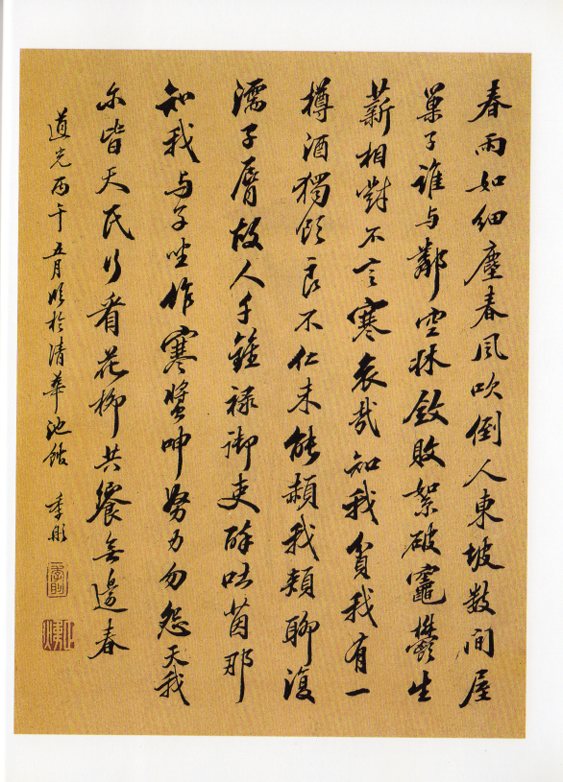 春雨如細塵春風吹倒人東坡数间屋
巢子誰与鄰空牀斂敗絮破竈鬱生
薪相對不言寒哀哉知我貧我有一
樽酒獨飲良不仁未能赬我頰聊復
濡子脣故人千鍾祿御吏醉吐茵那
知我与子坐作寒螿呻努力勿怨天我
尔皆天民行看花柳共饗無邊春
道光丙午五月於清華池館 季彤